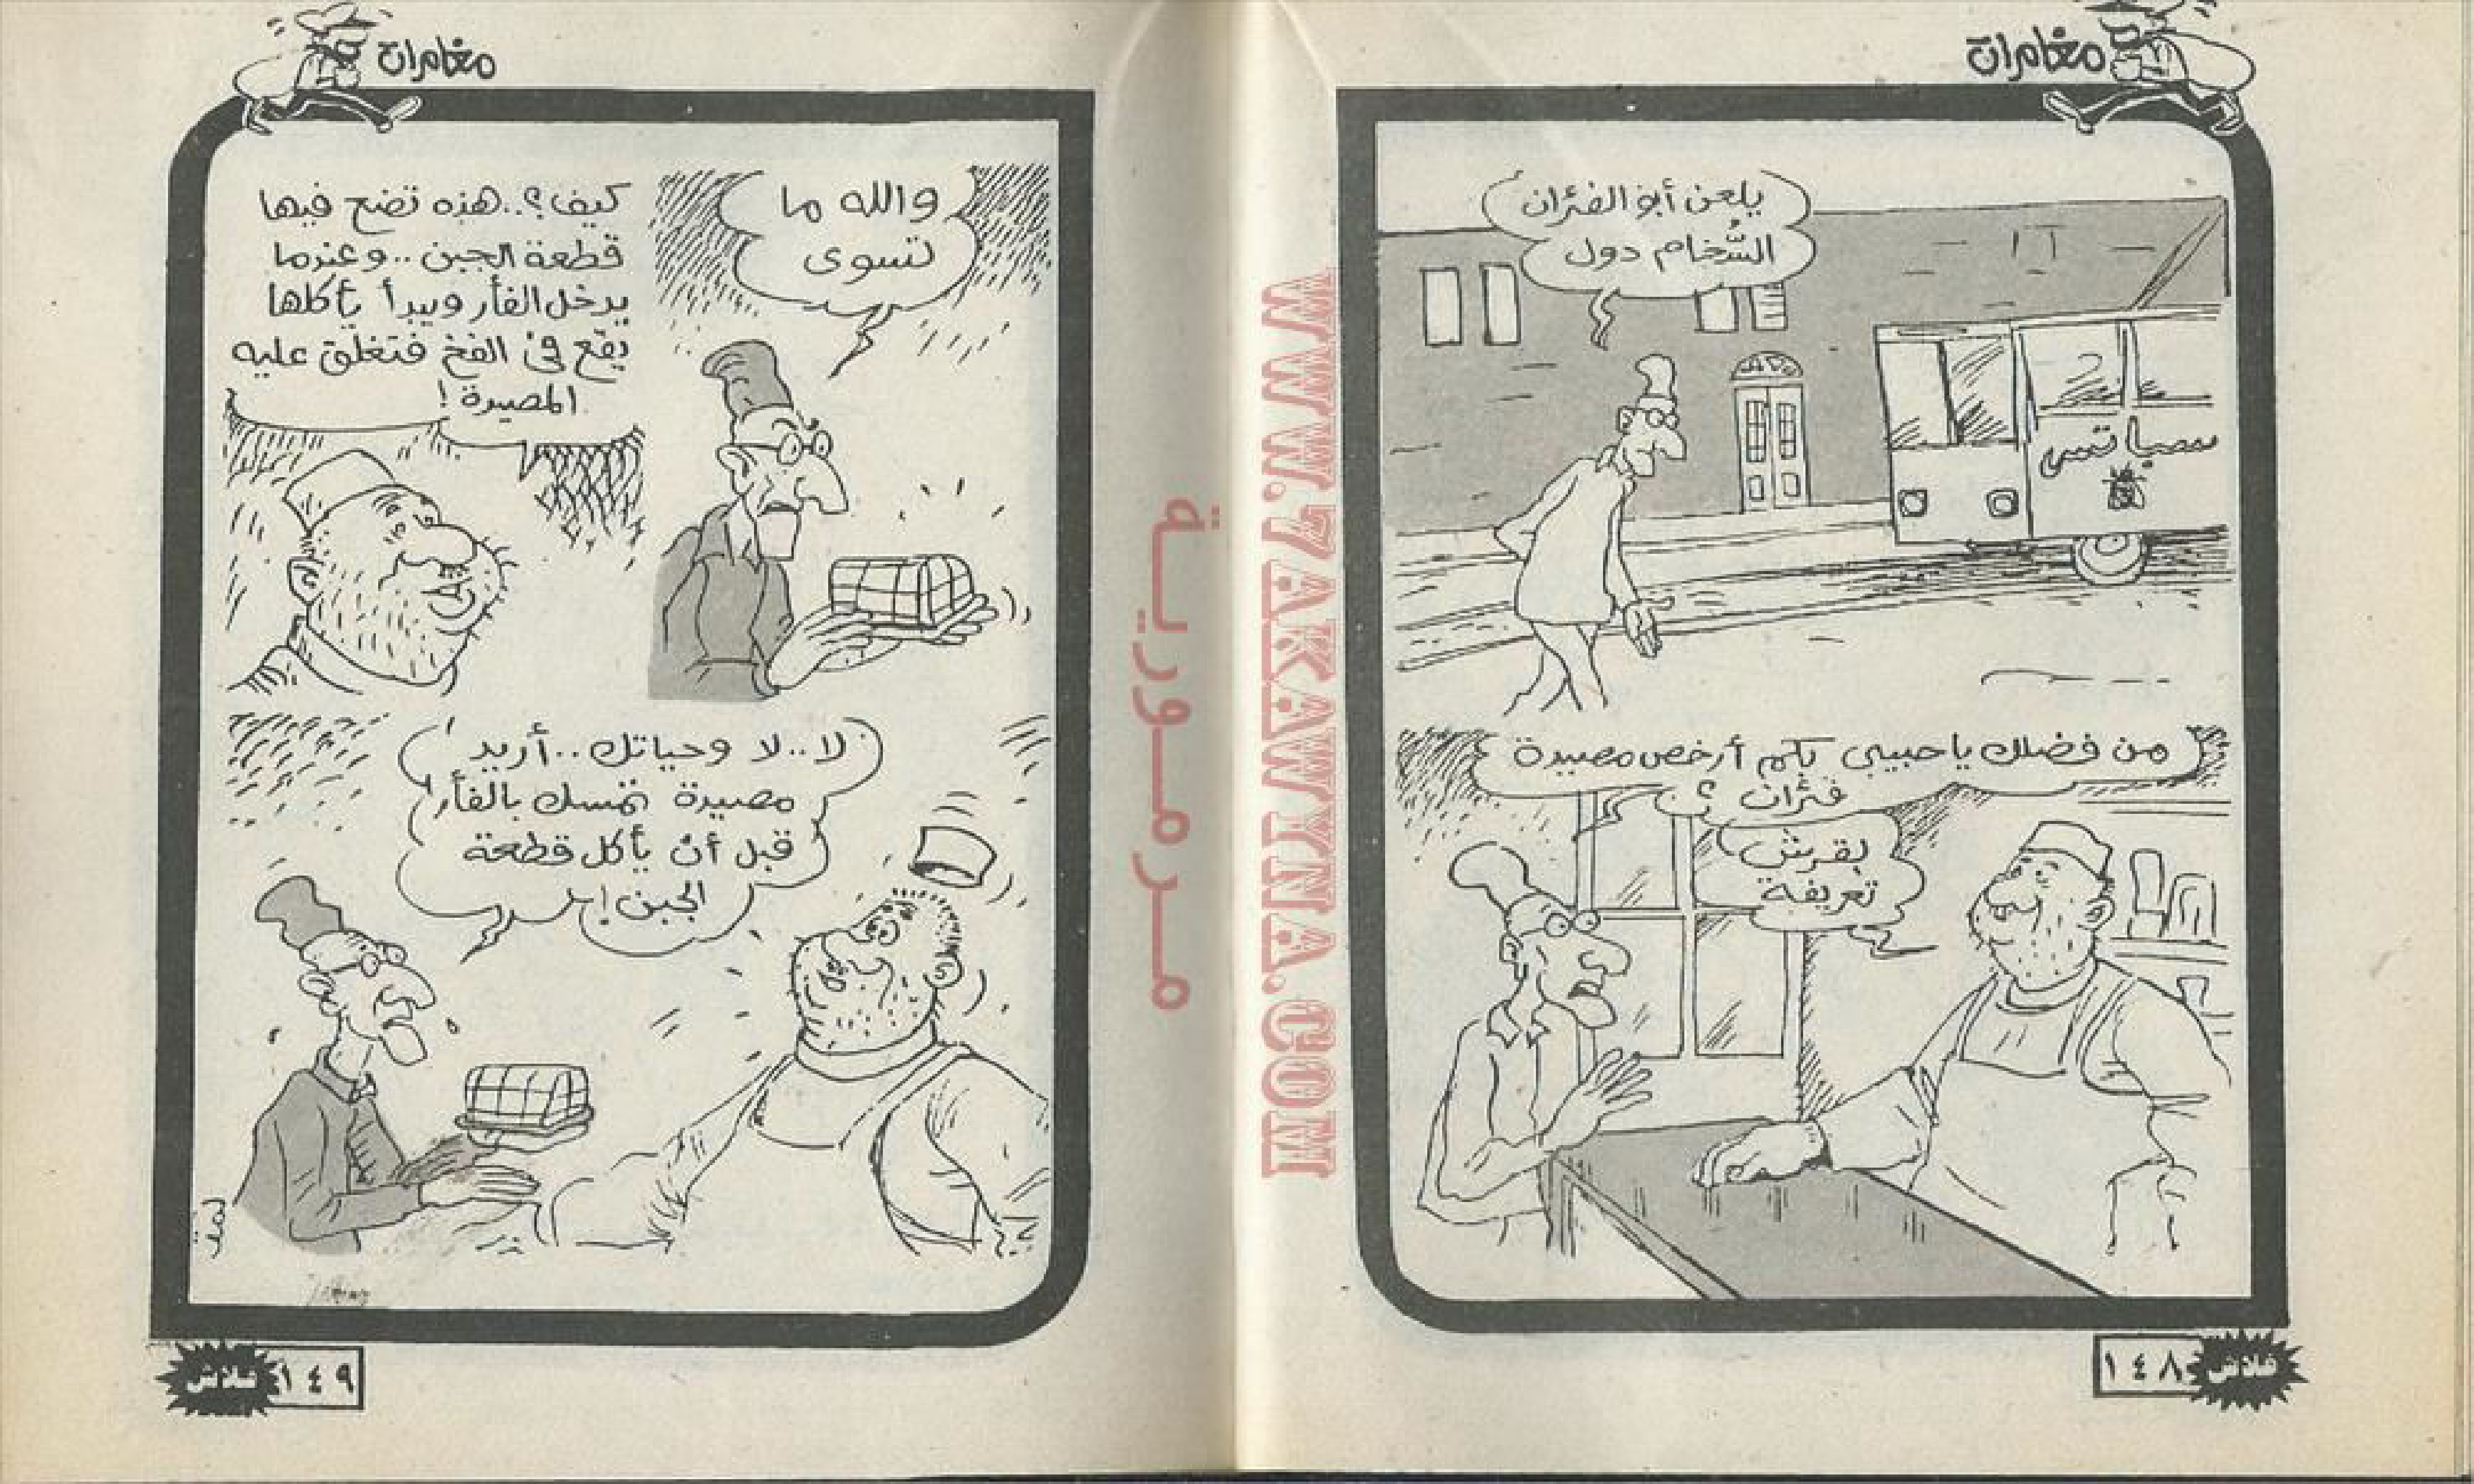 مغامرات
يلعن أبو الفئران
السُّخام دول
سبا تس
من فضلك يا حبيبي بكم أرخص مصيدة
فئران ؟
بقرش
تعريفة
فلاش
١٤٨
WWW.7AKAWYNA.COM
مرمورية
مغامرات
والله ما
تسوى
كيف؟..هذه تضع فيها
قطعة الجبن ..وعندما
يدخل الفأر ويبدأ يأكلها
يقع فى الفخ فتغلق عليه
المصيدة !
لا..لا وحياتك..أريد
مصيدة تمسك بالفأر
قبل أن يأكل قطعة
الجبن !
١٤٩
فلاش